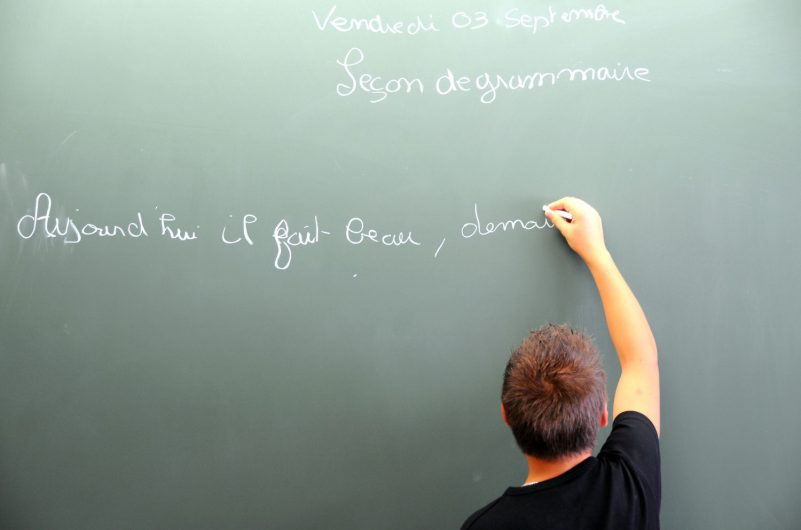 Vendredi 03 Septembre
Leçon de grammaire
Aujourd'hui il fait beau, demai